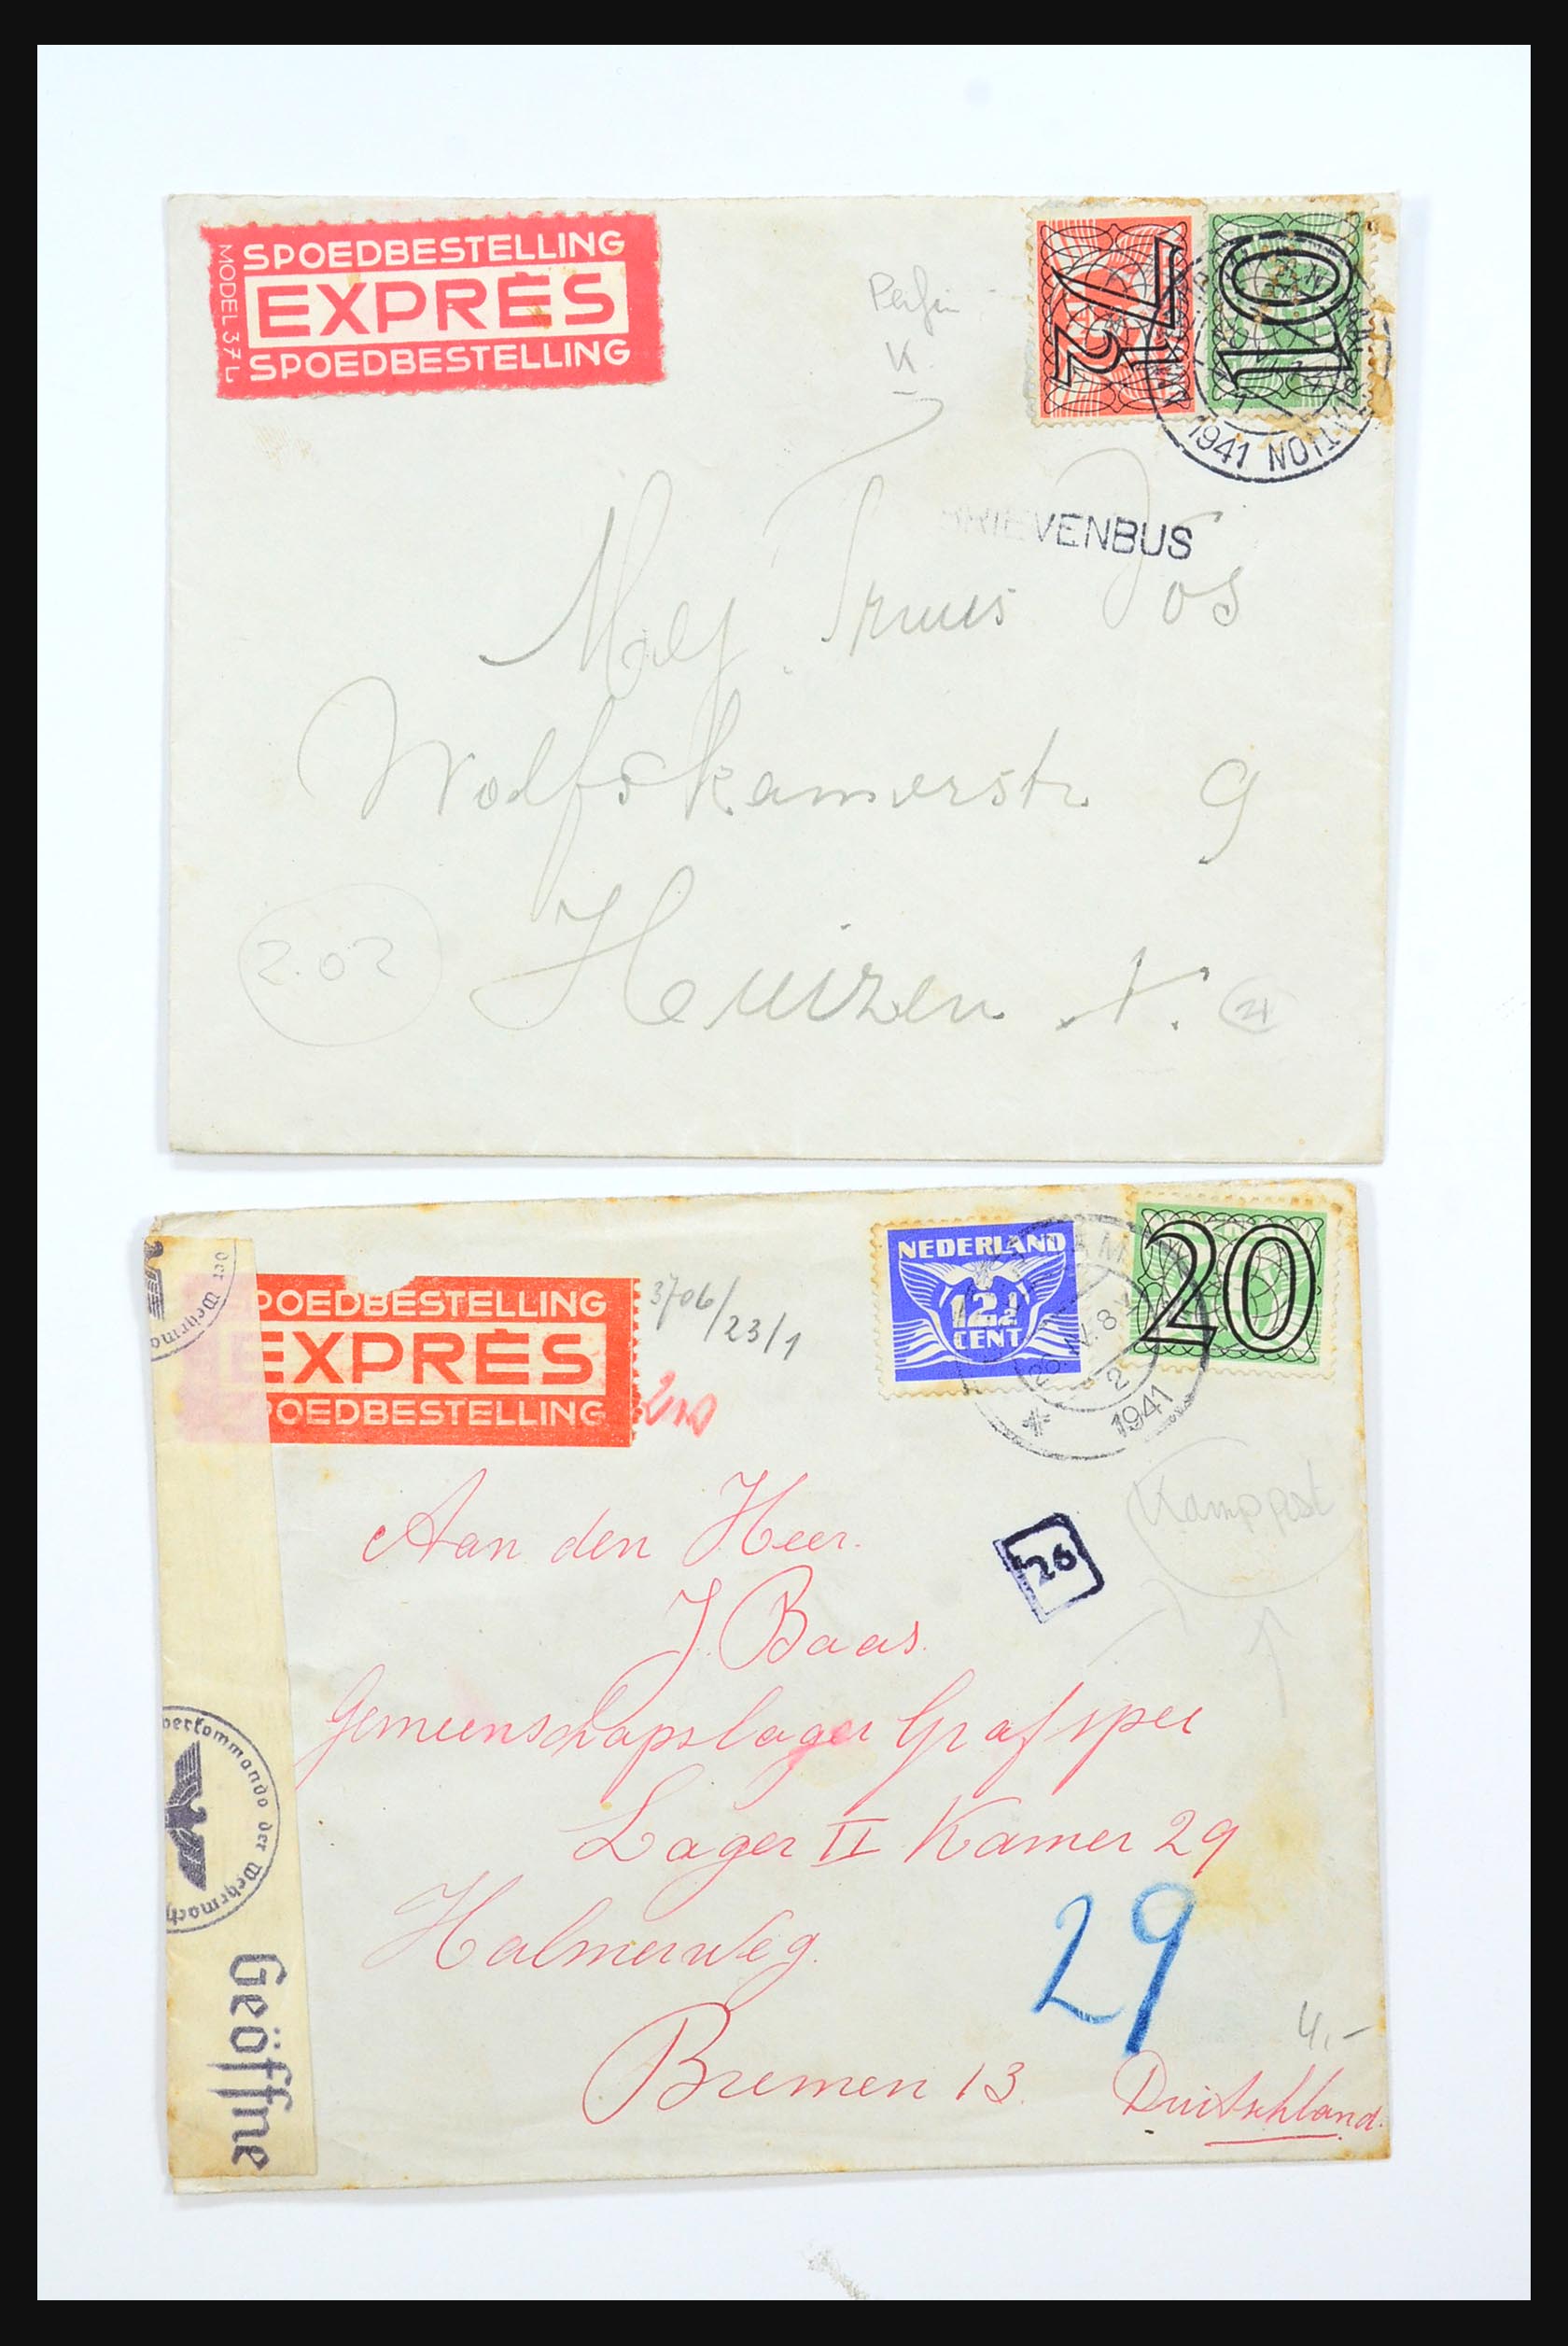 SPOEDBESTELLING
EXPRÈS
SPOEDBESTELLING
MODEL 37 L
Perfin
K
7½
10
1941
STATION
BRIEVENBUS
Mej. Truus Vos
Wolfskamerstr 9
Huizen N.
2.02
21
POEDBESTELLING
EXPRÈS
POEDBESTELLING
3706/23/1
NEDERLAND
12½
CENT
20
1941
Kamppost
26
Aan den Heer.
J. Baas.
Gemeenschapslager Grafspee
Lager II Kamer 29
Halmerweg.
Bremen 13. Duitschland.
29
4,-
der Wehrma
berkommando der Wehrmach
Geöffne